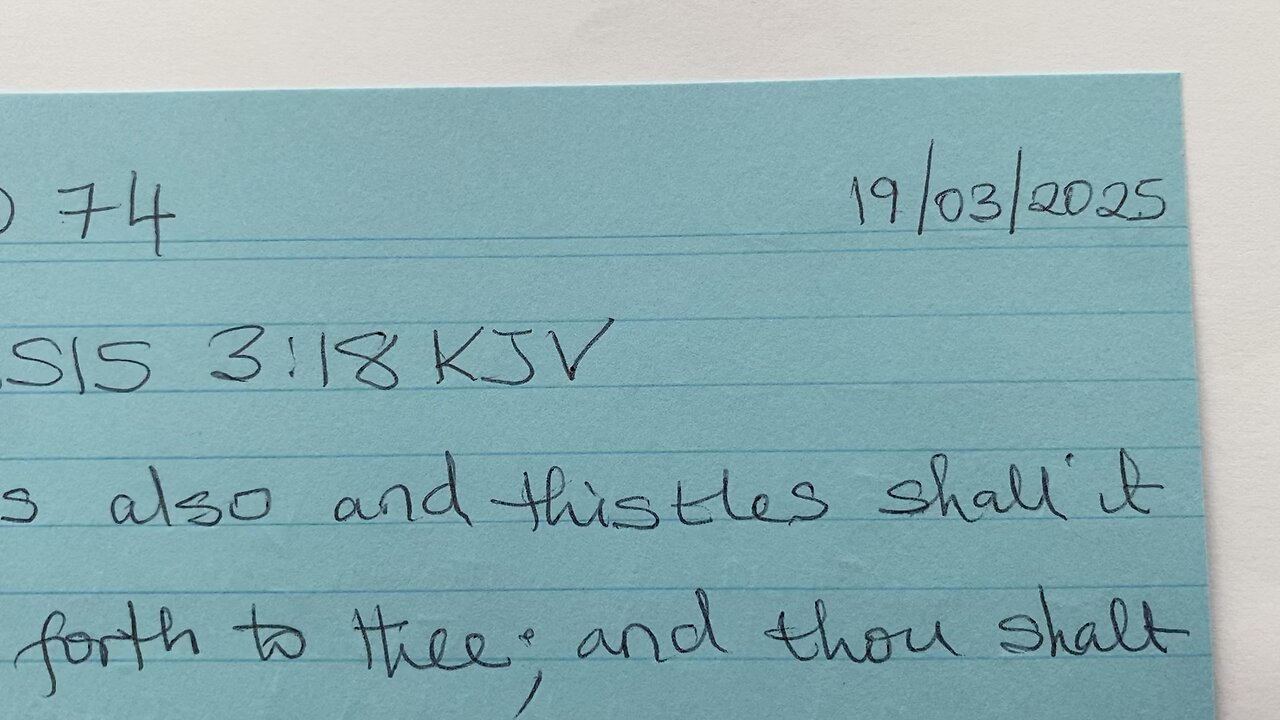 74 19/03/2025
SIS 3:18 KJV
s also and thistles shall it
forth to thee; and thou shalt